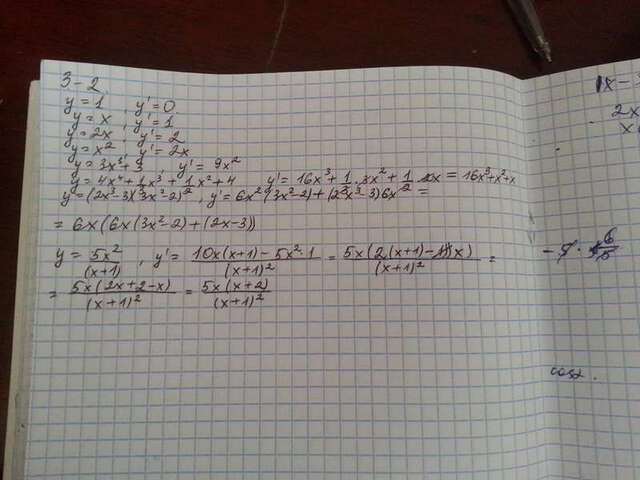 3-2
y = 1 y' = 0
y = x , y' = 1
y = 2x , y' = 2
y = x² , y' = 2x
y = 3x³ + 3 , y' = 9x²
y = 4x⁴ + 1/3 x³ + 1/2 x² + 4 y' = 16x³ + 1/3 · 3x² + 1/2 · 2x = 16x³ + x² + x
y = (2x³ - 3)(3x² - 2) , y' = 6x² (3x² - 2) + (2x³ - 3) 6x =
= 6x (6x (3x² - 2) + (2x - 3))
y = 5x²/(x+1) , y' = (10x(x+1) - 5x² · 1)/(x+1)² = 5x(2(x+1) - x)/(x+1)² =
= 5x(2x + 2 - x)/(x+1)² = 5x(x+2)/(x+1)²
cosx.